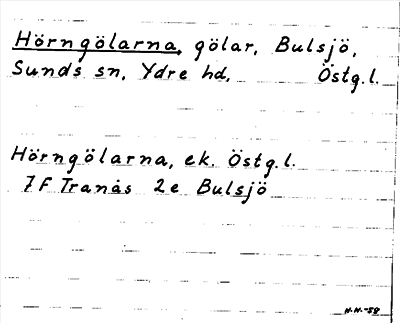 Hörngölarna, gölar, Bulsjö,
Sunds sn, Ydre hd, Östg.l.
Hörngölarna, ek. Östg.l.
7F Tranås 2e Bulsjö
N.N.-58